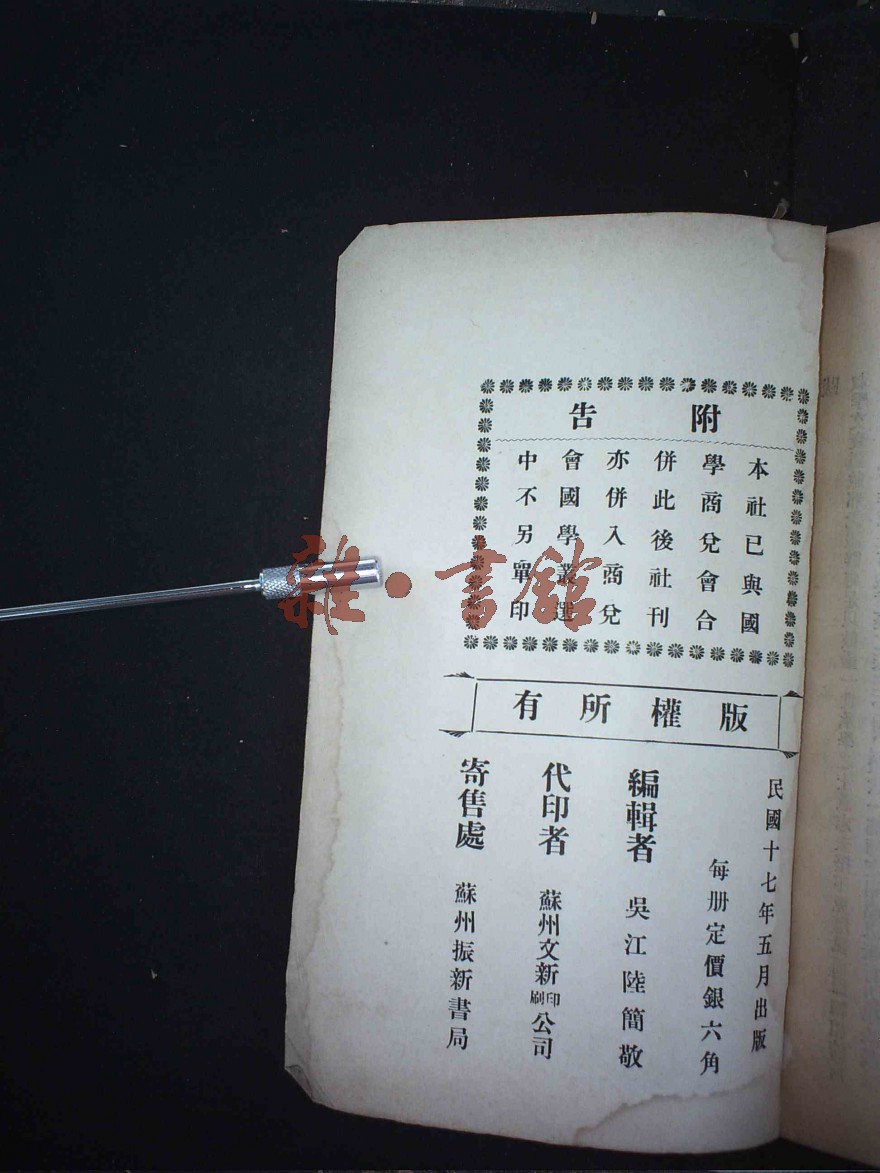 附告
本社已與國
學商兌會合
併此後社刊
亦併入商兌
會國學叢選
中不另單印
版權所有
民國十七年五月出版
每册定價銀六角
編輯者 吳江陸簡敬
代印者 蘇州文新印刷公司
寄售處 蘇州振新書局
雜·書館